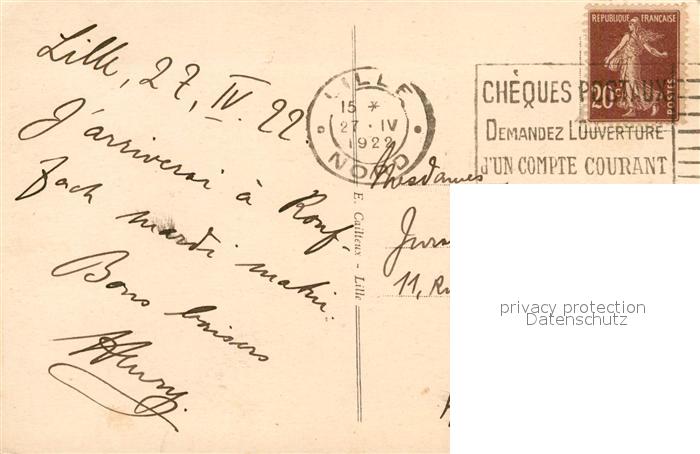 Lille, 27, IV. 22.
J'arriverai à Rouf,
fach mardi matin.
Bons baisers
RÉPUBLIQUE FRANÇAISE
20c
POSTES
LILLE
15 *
27 · IV
1922
NORD
CHÈQUES POSTAUX
DEMANDEZ L'OUVERTURE
d'UN COMPTE COURANT
Mesdames
11, Ru
E. Cailteux - Lille
privacy protection
Datenschutz